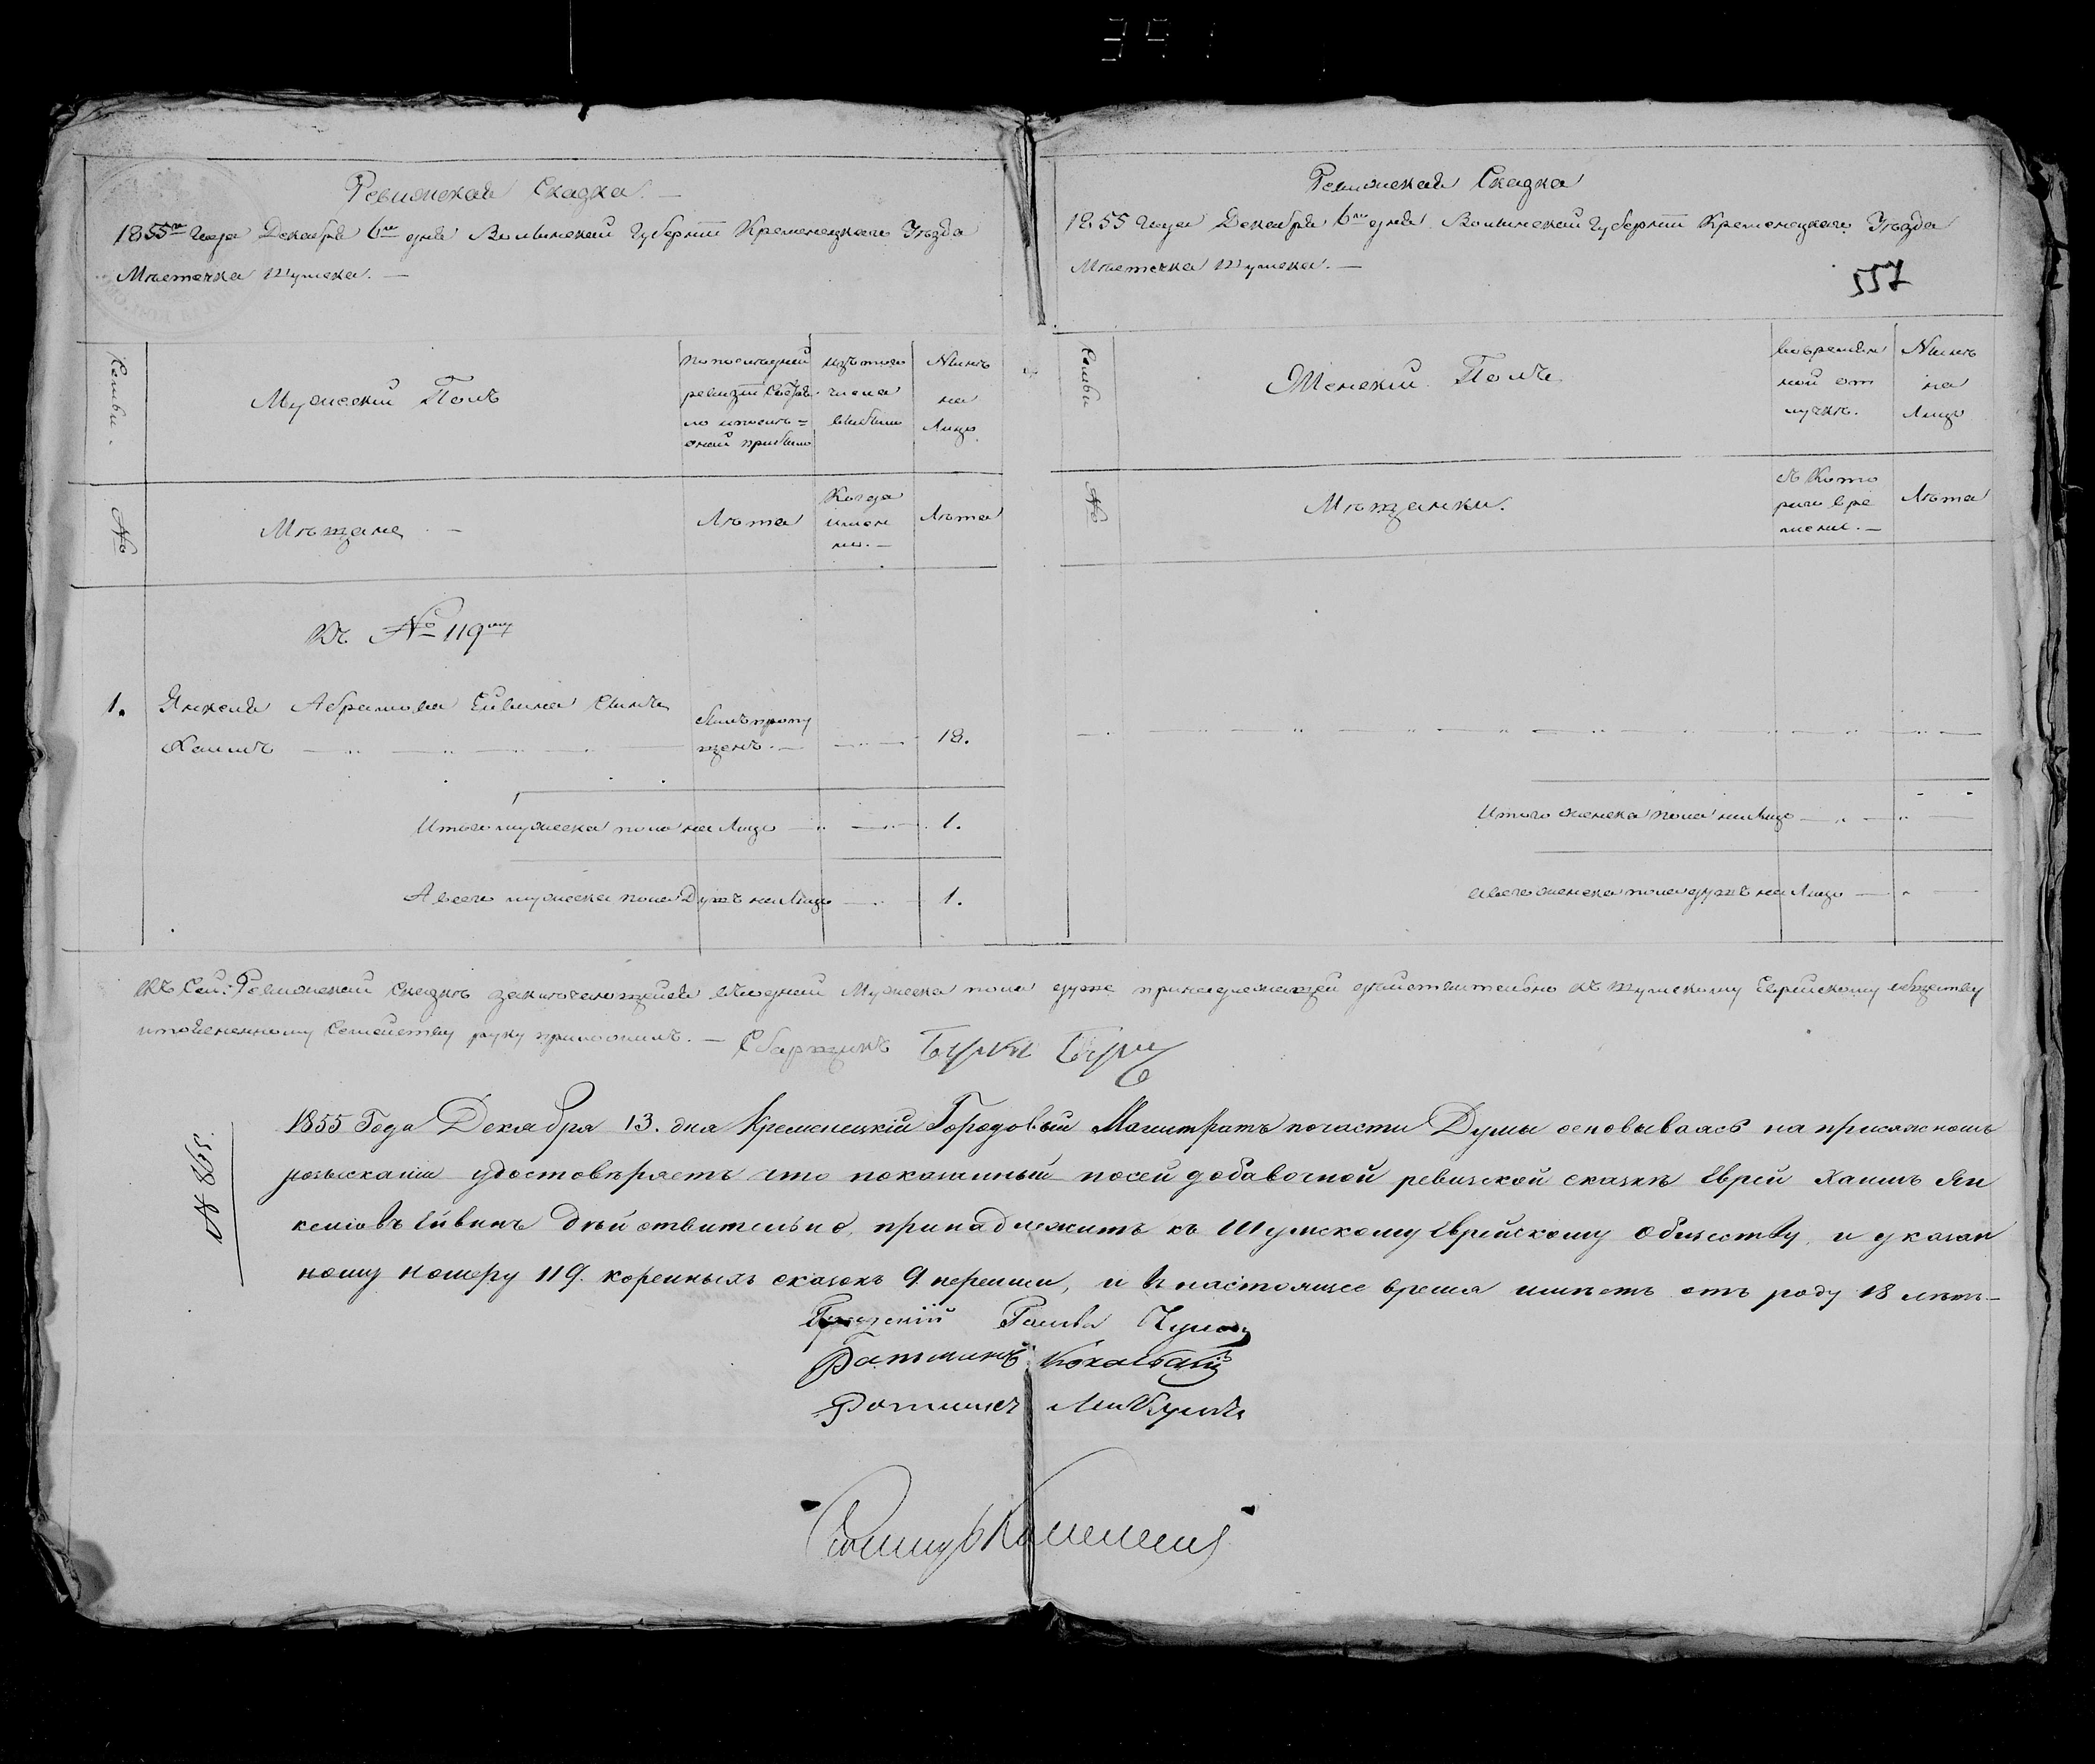 391
Ревижская Сказка.
1855го года Декабря 6го дня Волынской Губерніи Кременецкаго Уѣзда
Мѣстечка Шумска.
Семьи.
Мужескій Полъ
по последней
ревизіи состоя-
ло и после =
оной прибыло
изъ того
числа
выбыло
Нынѣ
на
Лицо
№
Мѣщане
Лѣта
Когда
имен
но.
Лѣта
Къ № 119му
1. Янкеля Абрамова Ейвина Сынъ
Хаимъ
былъ пропу
щенъ.
18.
Итого мужеска пола на Лицо 1.
А всего мужеска пола Душъ на Лицо 1.
Ревижская Сказка
1855 года Декабря 6го дня Волынской Губерніи Кременецкаго Уѣзда
Мѣстечка Шумска.
557
Семьи
Женскій Полъ
во времян
ной от
лучкѣ.
Нынѣ
на
Лицо
№
Мѣщанки.
Съ Кото
раго вре
мени.
Лѣта
Итого женска пола на Лицо
А всего женска пола душъ на Лицо
Къ Сей Ревижской Сказкѣ заключающейся въ одной Мужеска пола душе принадлежащей дѣйствительно къ Шумскому Еврейскому обществу
семейству руку приложилъ. Сборщикъ
№ 865.
1855 Года Декабря 13. дня Кременецкій Городовый Магистратъ по части Думы основываясь на присяжномъ
розысканіи удостовѣряетъ что показанный по сей добавочной ревизской сказкѣ Еврей Хаимъ Ян
келіовъ Ейвинъ дѣйствительно принадлежитъ къ Шумскому Еврейскому обществу, и указан
ному номеру 119. коренныхъ сказокъ 9 переписи, и въ настоящее время имѣетъ отъ роду 18 лѣтъ
Градскій Голова
Ратманъ
Ратманъ